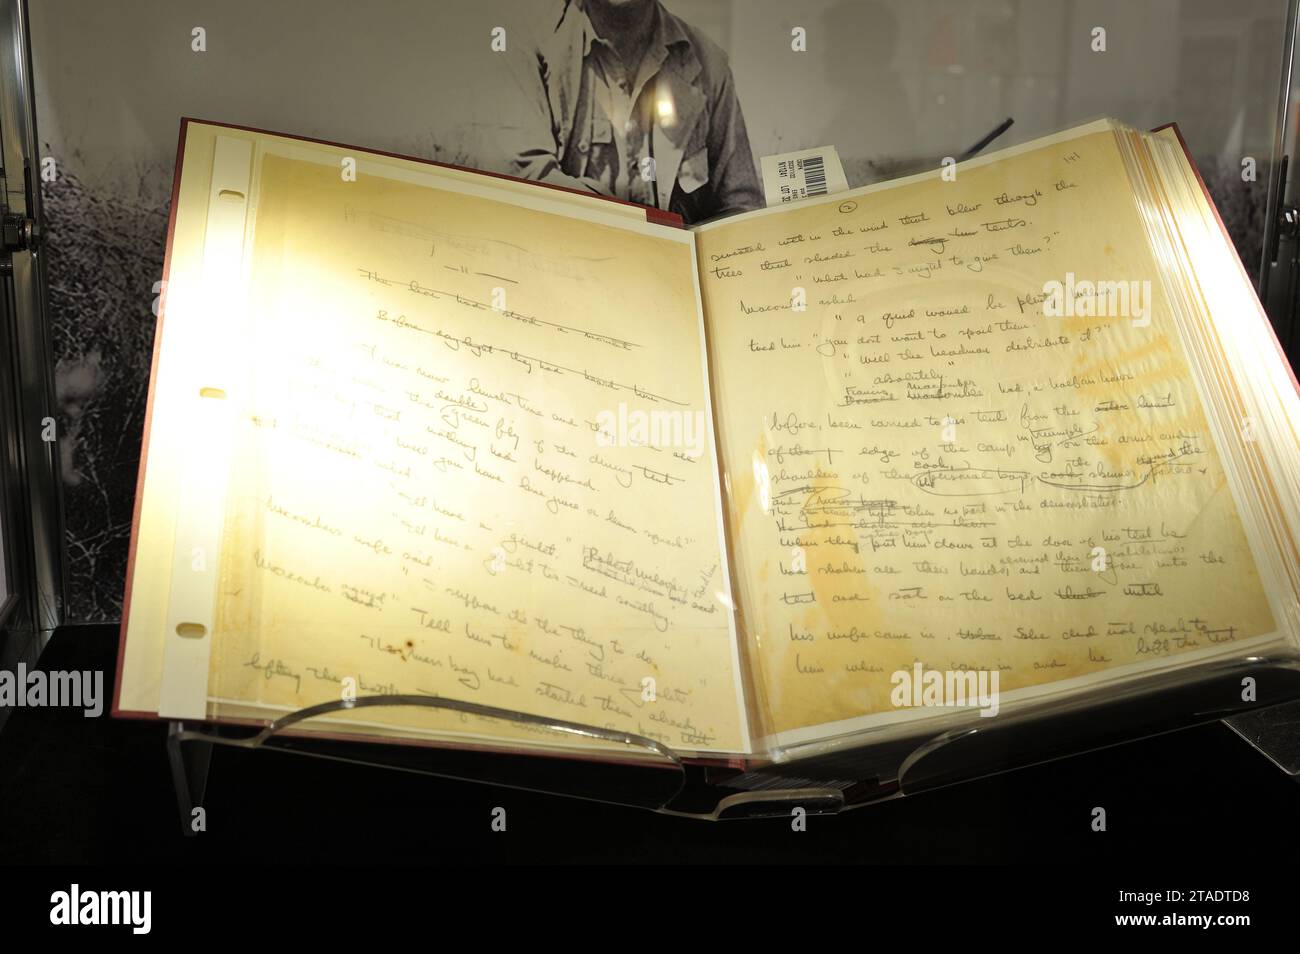 — " —
The lion had stood a moment
Before daylight they had heard him
It was now lunch time and they were all
double
the green fly of the dining tent
that nothing had happened.
will you have lime juice or lemon squash?"
asked.
"I'll have a gimlet," Robert Wilson
told him.
"I'll have a gimlet too. I need something."
Macomber's wife said.
"I suppose it's the thing to do,"
Macomber agreed
said. "Tell him to make three gimlets."
The mess boy had started them already,
lifting the bottles out of the bags that
141
2
sweated wet in the wind that blew through the
trees that shaded the tents.
"What had I ought to give them?"
Macomber asked.
"A quid would be plenty," Wilson
told him. "You dont want to spoil them."
"Will the headman distribute it?"
"absolutely."
Francis Macomber had, a half an hour
before, been carried to his tent from the
of the edge of the camp in triumph on the arms and
shoulders of the cook, the personal boys, cook, skinner, the porters
and
The gun bearers had taken no part in the demonstration.
He had shaken all their
When they native boys put him down at the door of his tent he
had shaken all their hands, received their congratulations and then gone into the
tent and sat on the bed that until
his wife came in. She did not speak to
him when she came in and he left the tent
LOT
a
alamy
Image ID: 2TADTD8
www.alamy.com